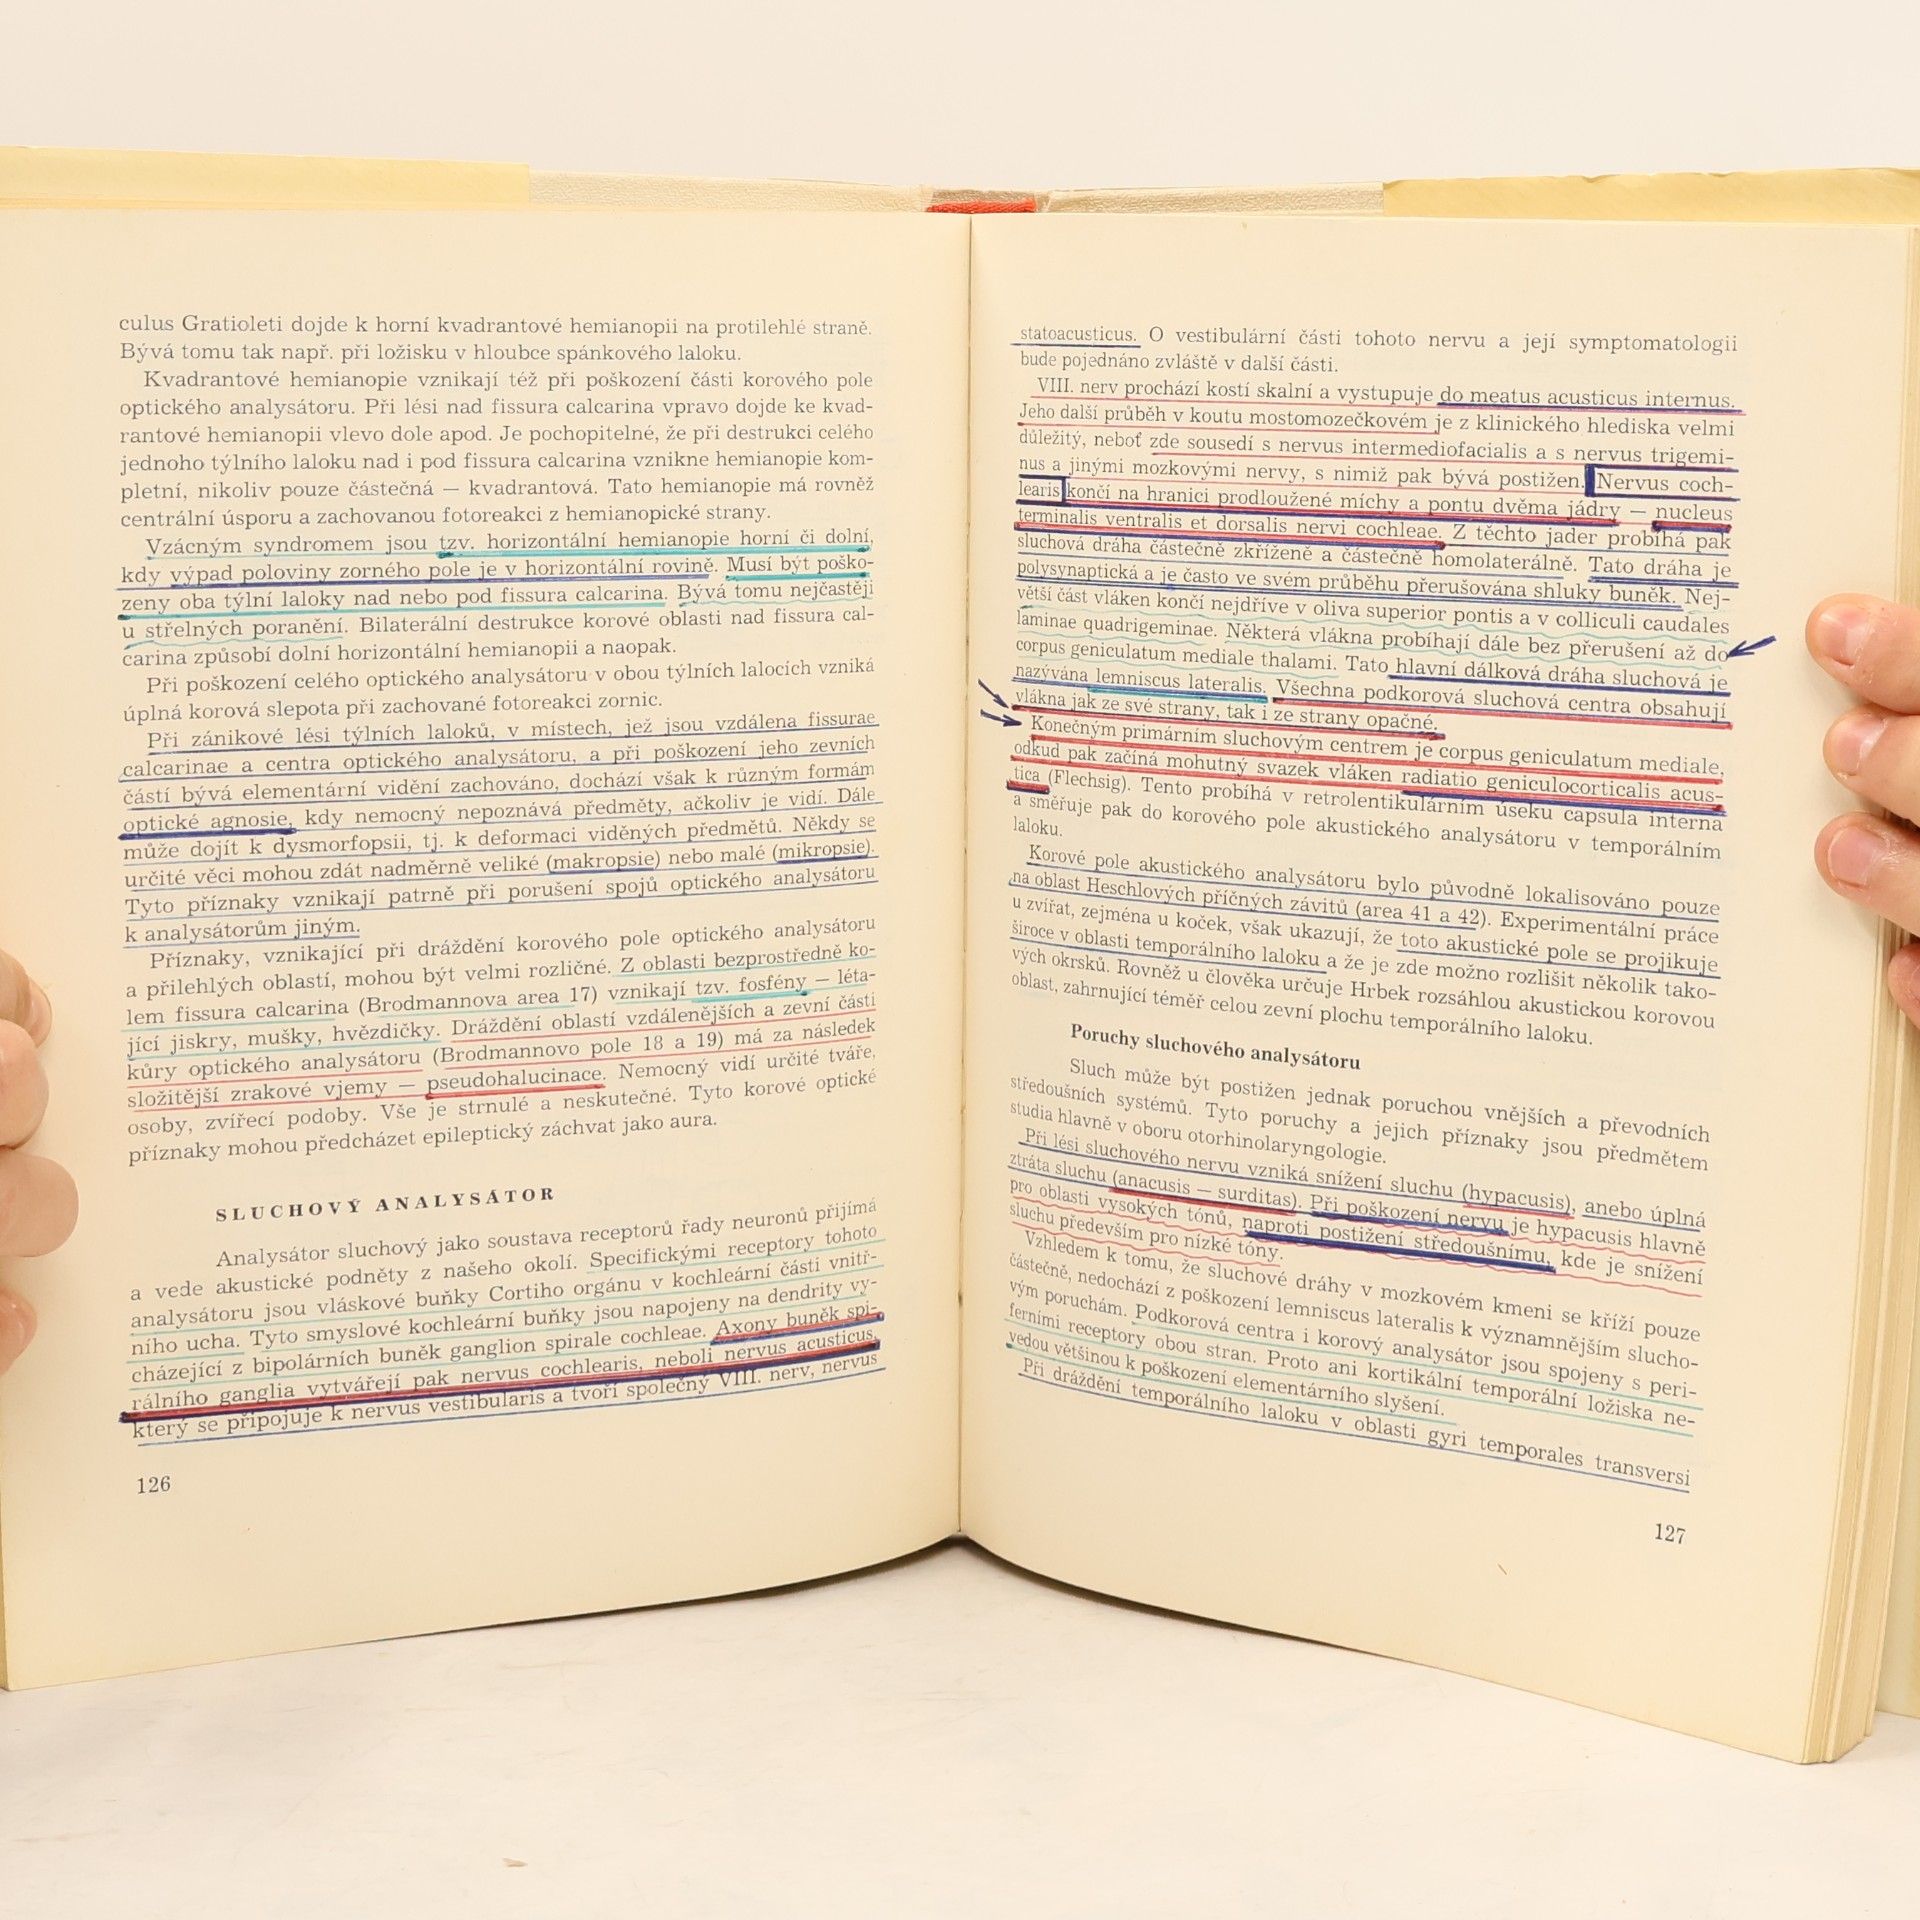 culus Gratioleti dojde k horní kvadrantové hemianopii na protilehlé straně.
Bývá tomu tak např. při ložisku v hloubce spánkového laloku.
Kvadrantové hemianopie vznikají též při poškození části korového pole
optického analysátoru. Při lési nad fissura calcarina vpravo dojde ke kvad-
rantové hemianopii vlevo dole apod. Je pochopitelné, že při destrukci celého
jednoho týlního laloku nad i pod fissura calcarina vznikne hemianopie kom-
pletní, nikoliv pouze částečná — kvadrantová. Tato hemianopie má rovněž
centrální úsporu a zachovanou fotoreakci z hemianopické strany.
Vzácným syndromem jsou tzv. horizontální hemianopie horní či dolní,
kdy výpad poloviny zorného pole je v horizontální rovině. Musí být poško-
zeny oba týlní laloky nad nebo pod fissura calcarina. Bývá tomu nejčastěji
u střelných poranění. Bilaterální destrukce korové oblasti nad fissura cal-
carina způsobí dolní horizontální hemianopii a naopak.
Při poškození celého optického analysátoru v obou týlních lalocích vzniká
úplná korová slepota při zachované fotoreakci zornic.
Při zánikové lési týlních laloků, v místech, jež jsou vzdálena fissurae
calcarinae a centra optického analysátoru, a při poškození jeho zevních
částí bývá elementární vidění zachováno, dochází však k různým formám
optické agnosie, kdy nemocný nepoznává předměty, ačkoliv je vidí. Dále
může dojít k dysmorfopsii, tj. k deformaci viděných předmětů. Někdy se
určité věci mohou zdát nadměrně veliké (makropsie) nebo malé (mikropsie).
Tyto příznaky vznikají patrně při porušení spojů optického analysátoru
k analysátorům jiným.
Příznaky, vznikající při dráždění korového pole optického analysátoru
a přilehlých oblastí, mohou být velmi rozličné. Z oblasti bezprostředně ko-
lem fissura calcarina (Brodmannova area 17) vznikají tzv. fosfény — léta-
jící jiskry, mušky, hvězdičky. Dráždění oblastí vzdálenějších a zevní části
kůry optického analysátoru (Brodmannovo pole 18 a 19) má za následek
složitější zrakové vjemy — pseudohalucinace. Nemocný vidí určité tváře,
osoby, zvířecí podoby. Vše je strnulé a neskutečné. Tyto korové optické
příznaky mohou předcházet epileptický záchvat jako aura.
SLUCHOVÝ ANALYSÁTOR
Analysátor sluchový jako soustava receptorů řady neuronů přijímá
a vede akustické podněty z našeho okolí. Specifickými receptory tohoto
analysátoru jsou vláskové buňky Cortiho orgánu v kochleární části vnitř-
ního ucha. Tyto smyslové kochleární buňky jsou napojeny na dendrity vy-
cházející z bipolárních buněk ganglion spirale cochleae. Axony buněk spi-
rálního ganglia vytvářejí pak nervus cochlearis, neboli nervus acusticus,
který se připojuje k nervus vestibularis a tvoří společný VIII. nerv, nervus
126
statoacusticus. O vestibulární části tohoto nervu a její symptomatologii
bude pojednáno zvláště v další části.
VIII. nerv prochází kostí skalní a vystupuje do meatus acusticus internus.
Jeho další průběh v koutu mostomozečkovém je z klinického hlediska velmi
důležitý, neboť zde sousedí s nervus intermediofacialis a s nervus trigemi-
nus a jinými mozkovými nervy, s nimiž pak bývá postižen. Nervus coch-
learis končí na hranici prodloužené míchy a pontu dvěma jádry — nucleus
terminalis ventralis et dorsalis nervi cochleae. Z těchto jader probíhá pak
sluchová dráha částečně zkříženě a částečně homolaterálně. Tato dráha je
polysynaptická a je často ve svém průběhu přerušována shluky buněk. Nej-
větší část vláken končí nejdříve v oliva superior pontis a v colliculi caudales
laminae quadrigeminae. Některá vlákna probíhají dále bez přerušení až do
corpus geniculatum mediale thalami. Tato hlavní dálková dráha sluchová je
nazývána lemniscus lateralis. Všechna podkorová sluchová centra obsahují
vlákna jak ze své strany, tak i ze strany opačné.
Konečným primárním sluchovým centrem je corpus geniculatum mediale,
odkud pak začíná mohutný svazek vláken radiatio geniculocorticalis acus-
tica (Flechsig). Tento probíhá v retrolentikulárním úseku capsula interna
a směřuje pak do korového pole akustického analysátoru v temporálním
laloku.
Korové pole akustického analysátoru bylo původně lokalisováno pouze
na oblast Heschlových příčných závitů (area 41 a 42). Experimentální práce
u zvířat, zejména u koček, však ukazují, že toto akustické pole se projikuje
široce v oblasti temporálního laloku a že je zde možno rozlišit několik tako-
vých okrsků. Rovněž u člověka určuje Hrbek rozsáhlou akustickou korovou
oblast, zahrnující téměř celou zevní plochu temporálního laloku.
Poruchy sluchového analysátoru
Sluch může být postižen jednak poruchou vnějších a převodních
středoušních systémů. Tyto poruchy a jejich příznaky jsou předmětem
studia hlavně v oboru otorhinolaryngologie.
Při lési sluchového nervu vzniká snížení sluchu (hypacusis), anebo úplná
ztráta sluchu (anacusis — surditas). Při poškození nervu je hypacusis hlavně
pro oblasti vysokých tónů, naproti postižení středoušnímu, kde je snížení
sluchu především pro nízké tóny.
Vzhledem k tomu, že sluchové dráhy v mozkovém kmeni se kříží pouze
částečně, nedochází z poškození lemniscus lateralis k významnějším slucho-
vým poruchám. Podkorová centra i korový analysátor jsou spojeny s peri-
ferními receptory obou stran. Proto ani kortikální temporální ložiska ne-
vedou většinou k poškození elementárního slyšení.
Při dráždění temporálního laloku v oblasti gyri temporales transversi
127